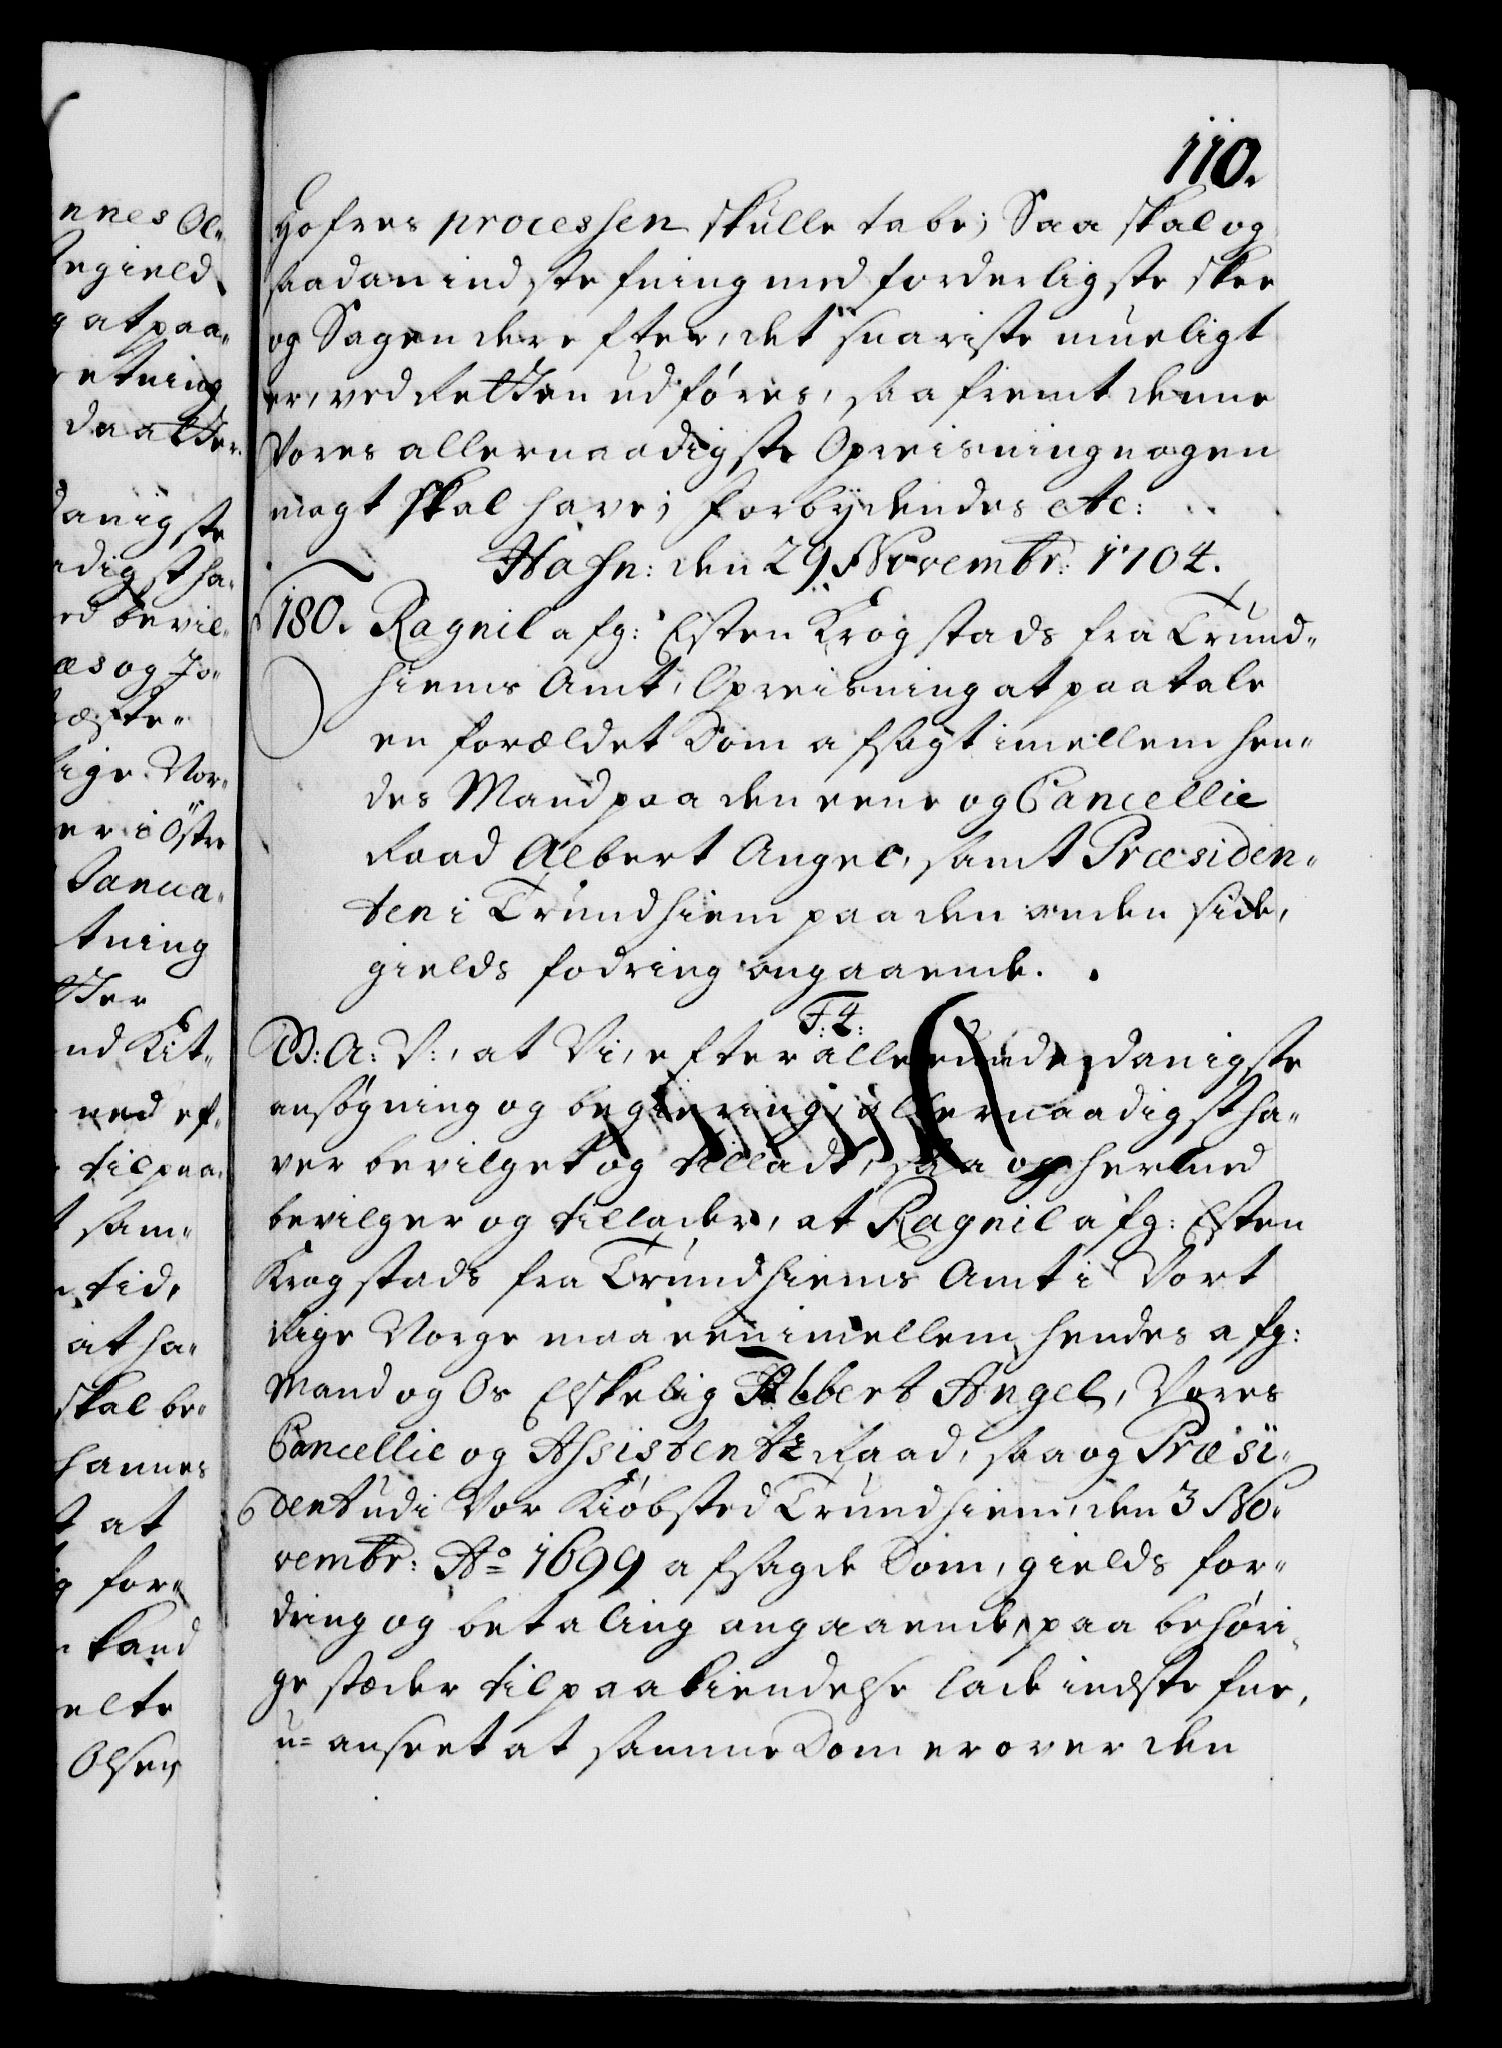 110.
nnes Ol-
Hofves processen skulle tabe; Saa skal og
saadan indstefning med forderligste skee
og Sagen derefter, det snariste mueligt
er, ved Retten udføres, saafremt denne
Vores allernaadigste Opreisning nogen
magt skal have; Forbydendes etc:
Hafn: den 29 Novembr: 1704.
180. Ragnil afg: Esten Krogstads fra Trund-
hiems Amt, Opreisning at paatale
en forældet Dom afsagt imellem hen-
des Mand paa den eene og Cancellie
Raad Albert Angel, samt Præsiden-
ten i Trundhiem paa den anden side,
gields fodring angaaende.
F: 4:
G: A: V:, at Vi, efter allerunderdanigste
ansøgning og begiering, allernaadigst ha-
ver bevilget og tilladt, saa og hermed
bevilger og tillader, at Ragnil afg: Esten
Krogstads fra Trundhiems Amt i Vort
Rige Norge maa een imellem hendes afg:
Mand og Os Elskelig Albert Angel, Vores
Cancellie og Assistentz Raad, saa og Præsi-
dent udi Vor Kiøbsted Trundhiem, den 3 No-
vembr: Ao 1699 afsagde Dom, gields for-
dring og betaling angaaende, paa behøri-
ge stæder til paakiendelse lade indstefne,
u-anseet at samme Dom er over den